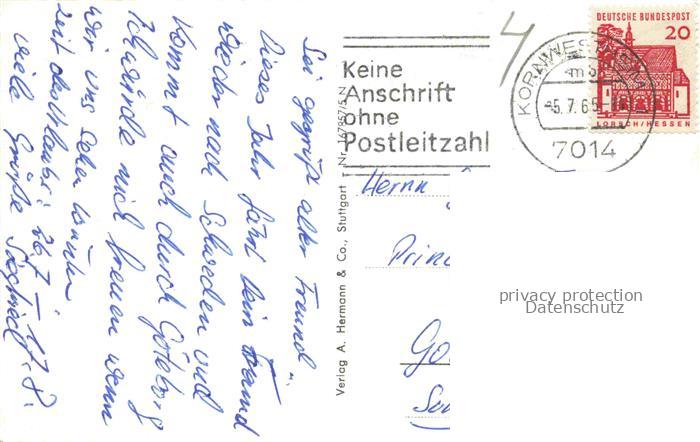 Sei gegrüßt alter Freund,
Dieses Jahr fährt Dein Freund
wieder nach Schweden und
kommt auch durch Göteborg
Ich würde mich freuen wenn
wir uns sehen könnten.
Zeit des Urlaubs: 26.7 – 17.8.
viele Grüße Siegfried
Verlag A. Hermann & Co., Stuttgart T
Keine
Anschrift
ohne
Postleitzahl
KORNWESTHEIM
-5.7.65
7014
DEUTSCHE BUNDESPOST
20
LORSCH/HESSEN
Herrn
privacy protection
Datenschutz